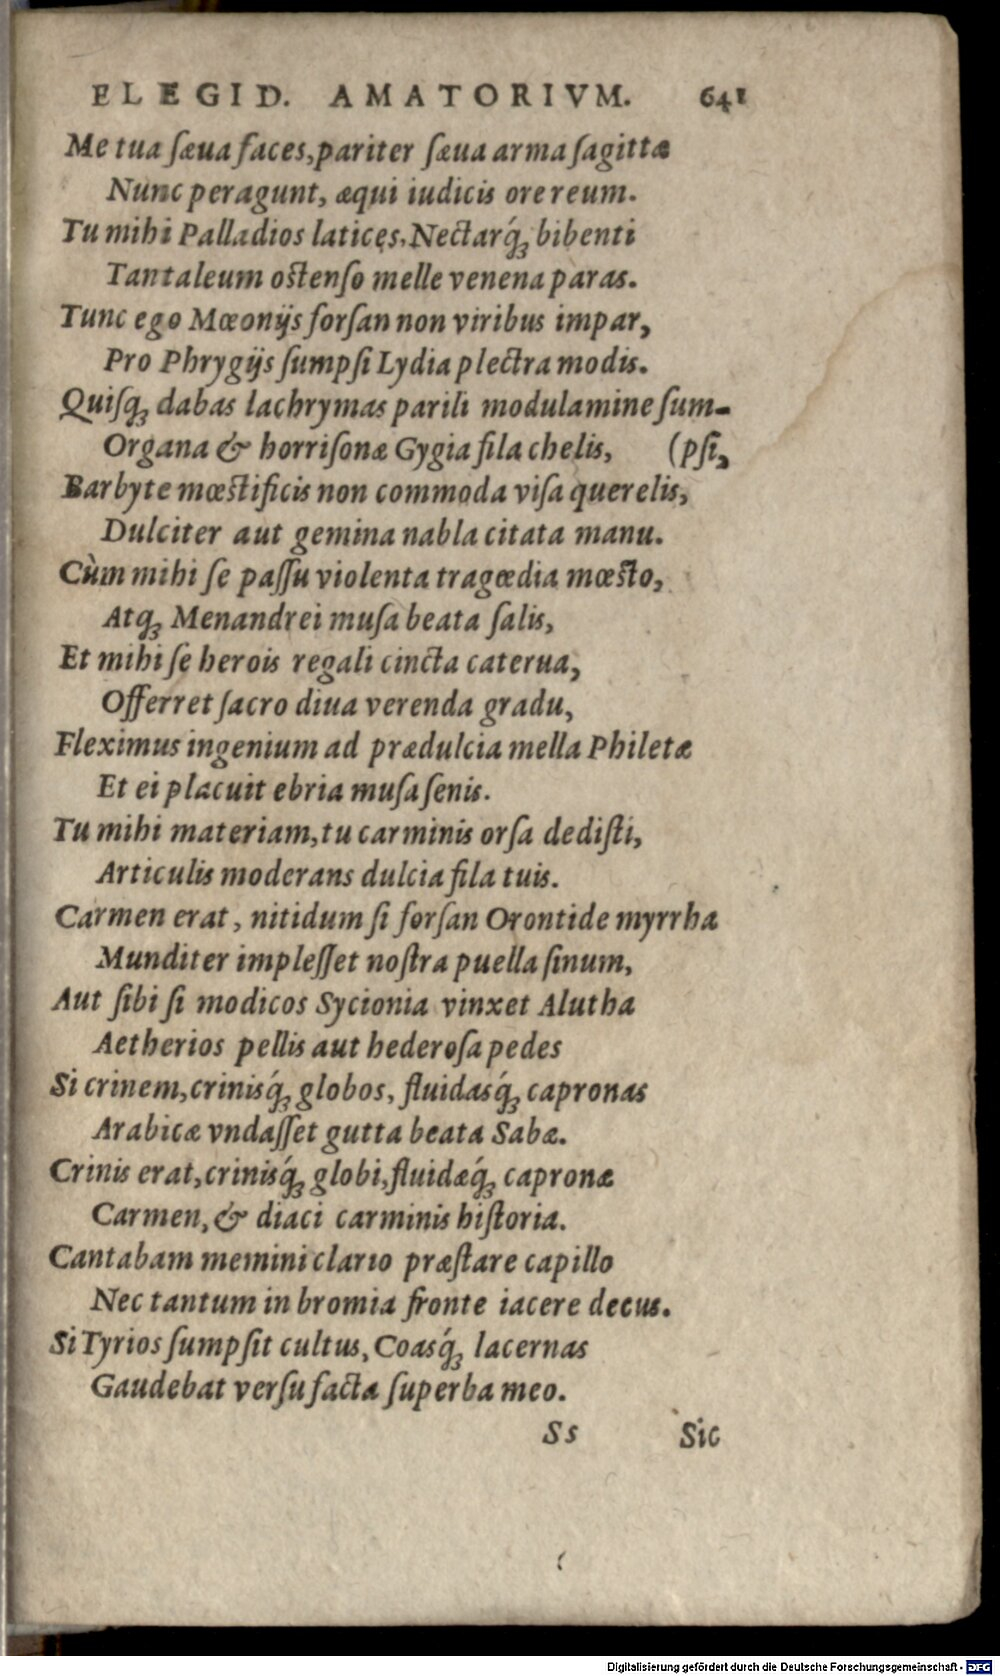 ELEGID. AMATORIVM. 641
Me tua ſæua faces, pariter ſæua arma ſagittæ
Nunc peragunt, æqui iudicis ore reum.
Tu mihi Palladios latices, Nectarq́ꝫ bibenti
Tantaleum oſtenſo melle venena paras.
Tunc ego Mœonijs forſan non viribus impar,
Pro Phrygijs ſumpſi Lydia plectra modis.
Quiſqꝫ dabas lachrymas parili modulamine ſum-
Organa & horriſonæ Gygia fila chelis, (pſi,
Barbyte mœſtificis non commoda viſa querelis,
Dulciter aut gemina nabla citata manu.
Cùm mihi ſe paſſu violenta tragœdia mœſto,
Atqꝫ Menandrei muſa beata ſalis,
Et mihi ſe herois regali cincta caterua,
Offerret ſacro diua verenda gradu,
Fleximus ingenium ad prædulcia mella Philetæ
Et ei placuit ebria muſa ſenis.
Tu mihi materiam, tu carminis orſa dediſti,
Articulis moderans dulcia fila tuis.
Carmen erat, nitidum ſi forſan Orontide myrrha
Munditer impleſſet noſtra puella ſinum,
Aut ſibi ſi modicos Sycionia vinxet Alutha
Aetherios pellis aut hederoſa pedes
Si crinem, crinisq́ꝫ globos, fluidasq́ꝫ capronas
Arabicæ vndaſſet gutta beata Sabæ.
Crinis erat, crinisq́ꝫ globi, fluidæq́ꝫ capronæ
Carmen, & diaci carminis hiſtoria.
Cantabam memini clario præſtare capillo
Nec tantum in bromia fronte iacere decus.
Si Tyrios ſumpſit cultus, Coasq́ꝫ lacernas
Gaudebat verſu facta ſuperba meo.
Ss Sic
Digitalisierung gefördert durch die Deutsche Forschungsgemeinschaft - DFG